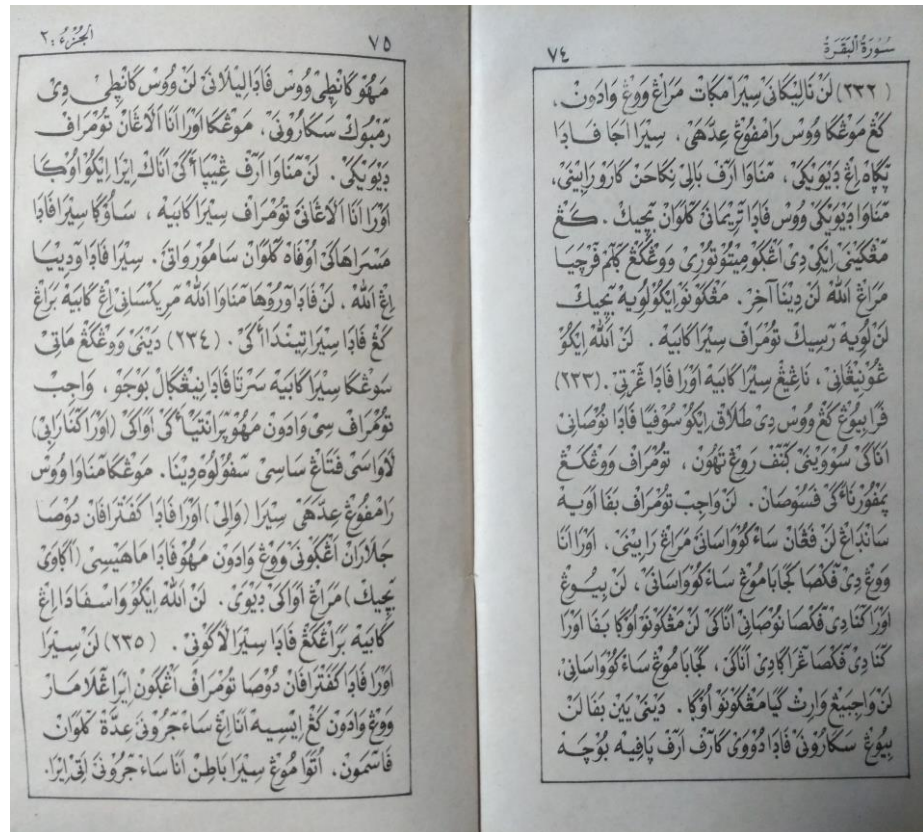 سُوْرَةُ الْبَقَرَةُ
٧٤
(٢٣٢) لَنْ نَالِيْكَانَىْ سِيْرَا مَڮَاتْ مَرَاڠْ وَوڠْ وَادَونْ،
كَڠْ مَوڠْكَا وُوسْ رَامْفُوڠْ عِدَّهَىْ، سِيْرَا اَجَا فَادَا
پْڮَاهْ اِڠْ دَيْوَيْكَىْ، مَّنَاوَا اَرَفْ بَالِىْ نِكَاحَنْ كَارَو رَابِيْنَىْ،
مَّنَاوَا دَيْوَيْكَىْ وُوسْ فَادَا تْرِيْمَانَىْ كَلَوَانْ بَچِيكْ. كَڠْ
مَڠْكَيْنَىْ اِيْكِىْ دِىْ اَڠْڮَو مِيْتُوْتُوْرِىْ وَوڠْكَڠْ ڮَلَمْ فَرْچَيَا
مَرَاڠْ اَللّٰهْ لَنْ دِيْنَا آخِرْ. مَڠْكَوْنَوْ اِيْكُوْ لُوِيْهْ بَچِيكْ
لَنْ لُوِيْهْ رَسِيكْ تُوْمْرَافْ سِيْرَا كَابَيْهْ. لَنْ اَللّٰهْ اِيْكُوْ
ڠُوْنِيْڠَانِىْ، نَاڠِيْڠْ سِيْرَا كَابَيْهْ اَوْرَا فَادَا ڠَرْتِىْ. (٢٣٣)
فَرَا بِيُوڠْ كَڠْ وُوسْ دِىْ طَلَاقْ اِيْكُوْ سُوْفَيَا فَادَا نُوْصَانِىْ
اَنَاكَىْ سُوْوَيْنَىْ ڮَنَفْ رَوڠْ تَهُونْ، تُوْمْرَافْ وَوڠْكَڠْ
پَمْفُوْرْنَاءَكَىْ فَسُوْصَانْ. لَنْ وَاجِبْ تُوْمْرَافْ بَفَا اَوَيْهْ
سَانْدَاڠْ لَنْ فَڠَانْ سَاءْكُوْوَاسَانَىْ مَرَاڠْ رَابِيْنَىْ، اَوْرَا اَنَا
وَوڠْ دِىْ فَكْصَا كَجَابَا مُوڠْ سَاءْكُوْوَاسَانَىْ، لَنْ بِيُوڠْ
اَوْرَا كَنَا دِىْ فَكْصَا نُوْصَانِىْ اَنَاكَىْ لَنْ مَڠْكَوْنَوْ اُوْڮَا بَفَا اَوْرَا
كَنَا دِىْ فَكْصَا ڠْرَاڮَادِىْ اَنَاكَىْ، كَجَابَا مُوڠْ سَاءْكُوْوَاسَانَىْ،
لَنْ وَاجِبَيْڠْ وَارِثْ كَيَا مَڠْكَوْنَوْ اُوْڮَا. دَيْنَىْ يَيْنْ بَفَا لَنْ
بِيُوڠْ سَكَارَوْنَىْ فَادَا دُوْوَىْ كَارَفْ اَرَفْ پَافِيْهْ بَوْچَهْ
اَلْجُزْءُ : ٢
٧٥
مَهُوْ كَانْطِىْ وُوسْ فَادَا لِيْلَانَىْ لَنْ وُوسْ كَانْطِىْ دِىْ
رَمْبُوكْ سَكَارَوْنَىْ، مَوڠْكَا اَوْرَا اَنَا اَلَاڠَانْ تُوْمْرَافْ
دَيْوَيْكَىْ. لَنْ مَّنَاوَا اَرَفْ ڠِيْپَاأَكَىْ اَنَاكْ اِيْرَا اِيْكُوْ اُوْڮَا
اَوْرَا اَنَا اَلَاڠَانَىْ تُوْمْرَافْ سِيْرَا كَابَيْهْ، سَاؤُڮَا سِيْرَا فَادَا
مَسْرَاهَاكَىْ اُوْفَاهْ كَلَوَانْ سَامُوْرْوَاتَىْ. سِيْرَا فَادَا وَدِيْيَا
اِڠْ اَللّٰهْ. لَنْ فَادَا وَرُوْهَا مَّنَاوَا اَللّٰهْ مَرِيكْسَانِىْ اِڠْ كَابَيْهْ بَرَاڠْ
كَڠْ فَادَا سِيْرَا تِيْنْدَاأَكَىْ. (٢٣٤) دَيْنَىْ وَوڠْكَڠْ مَاتِىْ
سَوڠْكَا سِيْرَا كَابَيْهْ سَرْتَا فَادَا نِيْڠْڮَالْ بَوْجَوْ، وَاجِبْ
تُوْمْرَافْ سِىْ وَادَونْ مَهُوْ پْرَانْتَيْأَكَىْ اَوَاكَىْ (اَوْرَا كَنَا رَابِىْ)
لَاوَاسَىْ فَتَاڠْ سَاسِىْ سَفُوْلُوْهْ دِيْنَا. مَوڠْكَا مَّنَاوَا وُوسْ
رَامْفُوڠْ عِدَّهَىْ سِيْرَا (وَالِىْ) اَوْرَا فَادَا كَفَتْرَافَانْ دُوْصَا
جَلَارَانْ اَڠْڮَوْنَىْ وَوڠْ وَادَونْ مَهُوْ فَادَا مَاهَيْسِىْ (اَڮَاوَىْ
بَچِيكْ) مَرَاڠْ اَوَاكَىْ دَيْوَىْ. لَنْ اَللّٰهْ اِيْكُوْ وَاسْفَادَا اِڠْ
كَابَيْهْ بَرَاڠْكَڠْ فَادَا سِيْرَا لَاكَوْنِىْ. (٢٣٥) لَنْ سِيْرَا
اَوْرَا فَادَا كَفَتْرَافَانْ دُوْصَا تُوْمْرَافْ اَڠْڮَونْ اِيْرَا ڠْلَامَارْ
وَوڠْ وَادَونْ كَڠْ اِيْسِيْهْ اَنَا اِڠْ سَاءْجَرَوْنَىْ عِدَّةْ كَلَوَانْ
فَاسَمَونْ. اُتَوَا مُوڠْ سِيْرَا بَاطِنْ اَنَا سَاءْجَرَوْنَىْ اَتِىْ اِيْرَا.